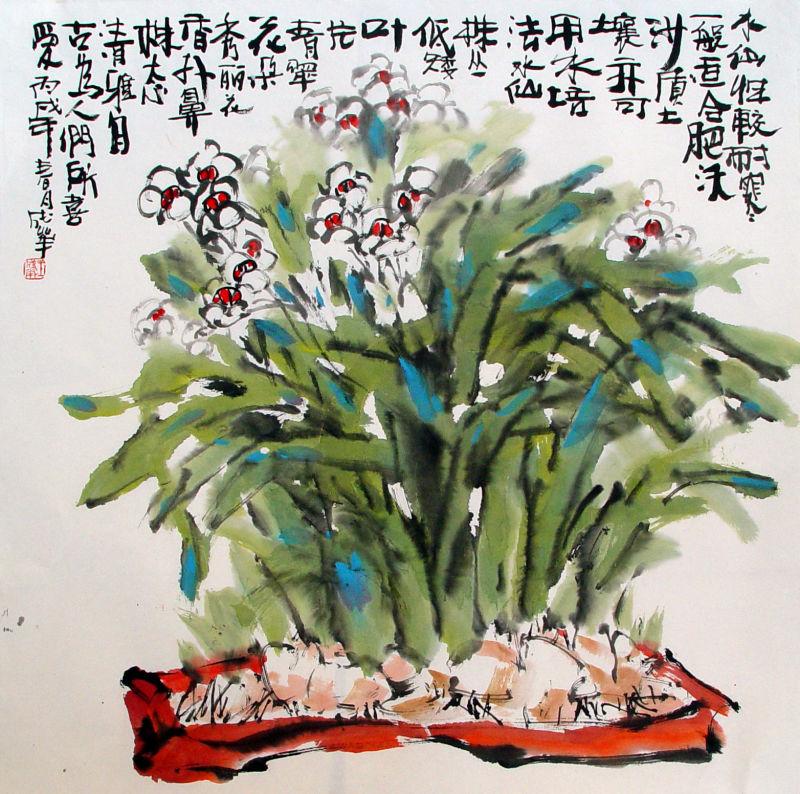 水仙性較耐寒
一般适合肥沃
沙质土
壤亦可
用水培
法水仙
株丛
低矮
叶
片
青翠
花朵
秀丽花
香扑鼻
株态
清雅自
古为人們所喜
愛丙戌年春月